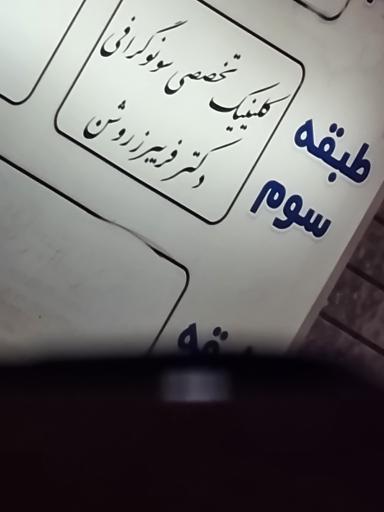 طبقه
سوم
کلینیک تخصصی سونوگرافی
دکتر فریبرز روشن